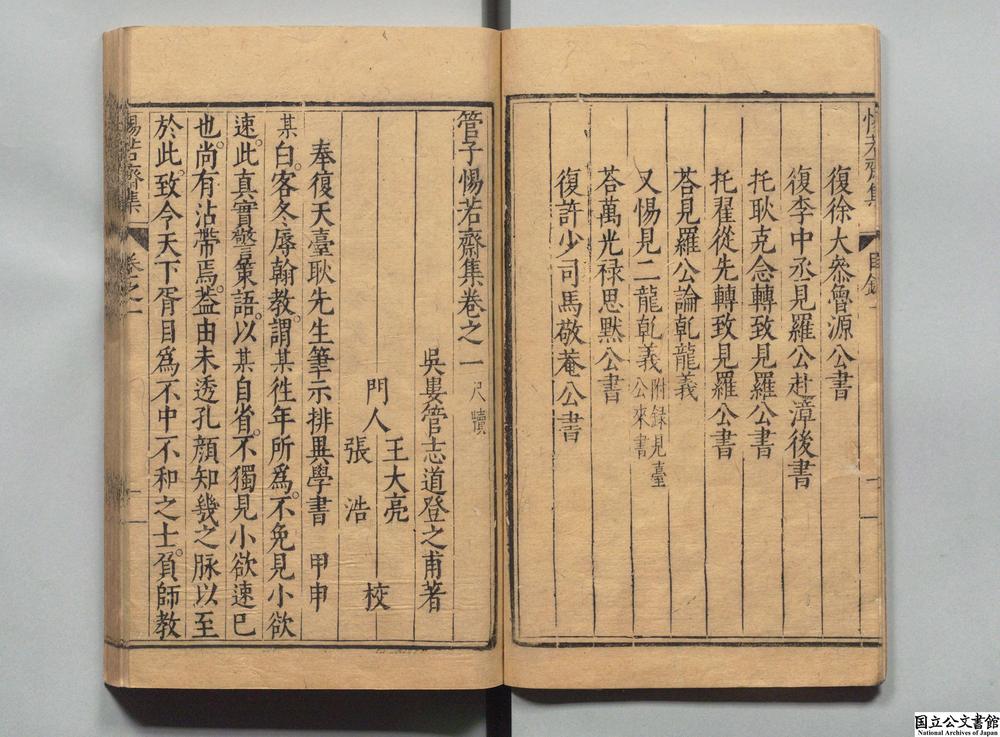 惕若齋集
目錄
復徐大叅魯源公書
復李中丞見羅公赴漳後書
托耿克念轉致見羅公書
托翟從先轉致見羅公書
荅見羅公論乾龍義
又惕見二龍乾義 附録見臺公來書
荅萬光禄思默公書
復許少司馬敬菴公書
管子惕若齋集卷之一 尺牘
吳婁管志道登之甫著
門人 王大亮 校
張浩
奉復天臺耿先生筆示排異學書 甲申
某白。客冬辱翰教。謂某徃年所爲。不免見小欲
速。此真實警策語。以某自省。不獨見小欲速已
也。尚有沾帶焉。葢由未透孔顔知幾之脉以至
於此。致今天下胥目爲不中不和之士。負師教
惕若齋集
卷之一
一
国立公文書館
National Archives of Japan